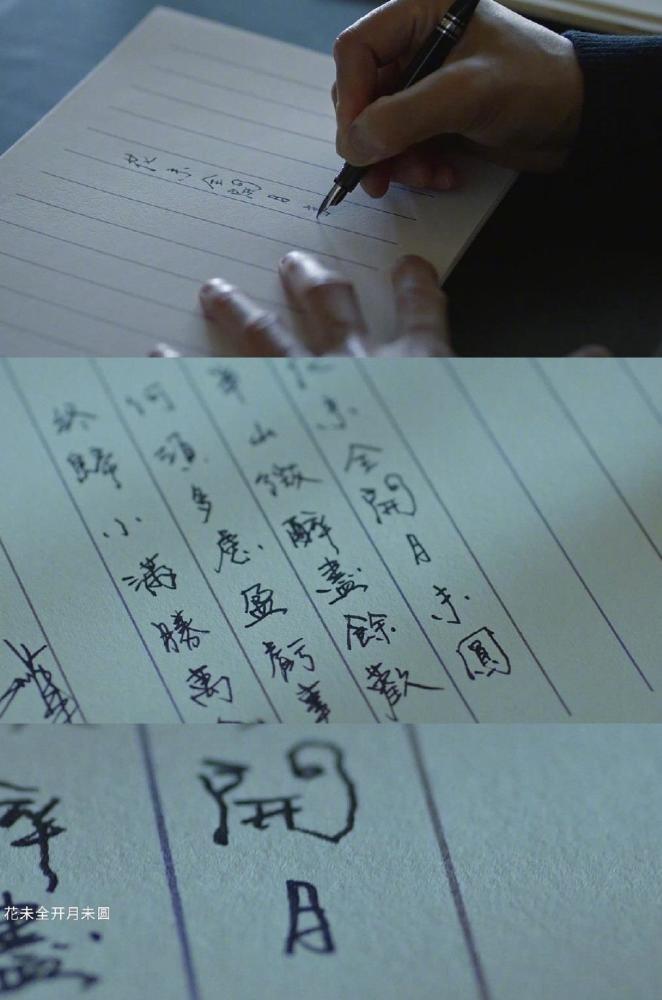 花未全開月
花未全開月未圓
半山微醉盡餘歡
何須多慮盈虧事
終歸小滿勝萬
開月
盡
花未全开月未圆